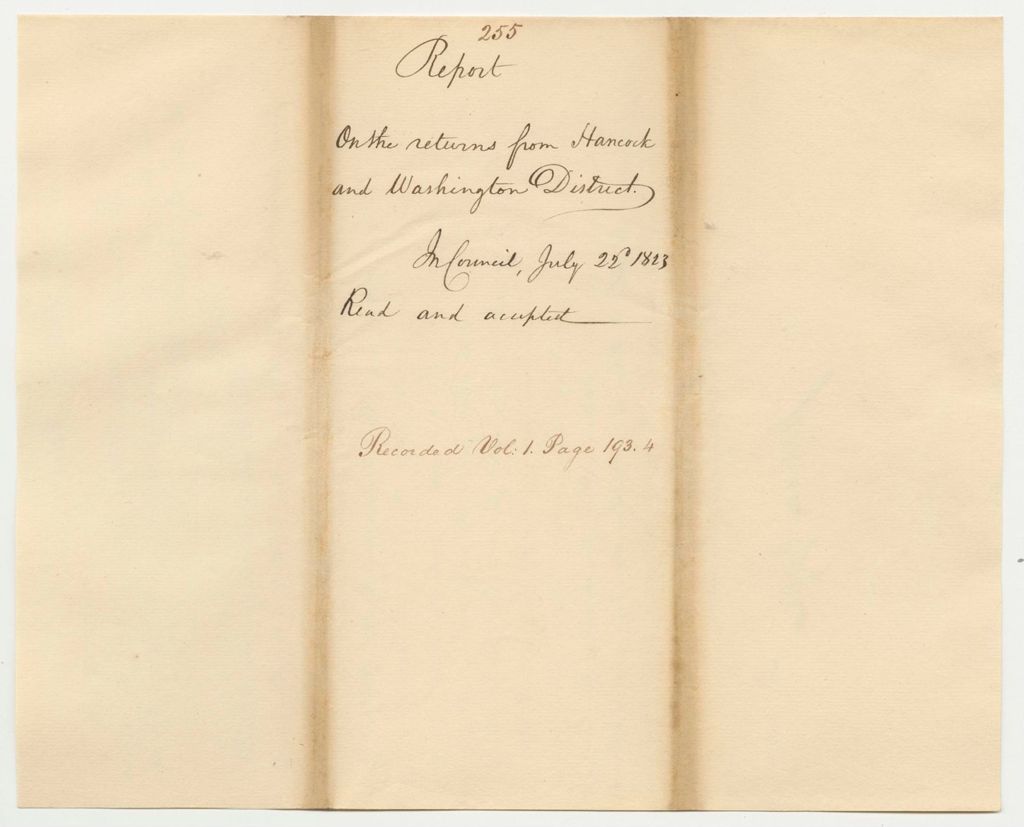 255
Report
On the returns from Hancock
and Washington District.
In Council, July 22d 1823
Read and accepted
Recorded Vol: 1. Page 193. 4